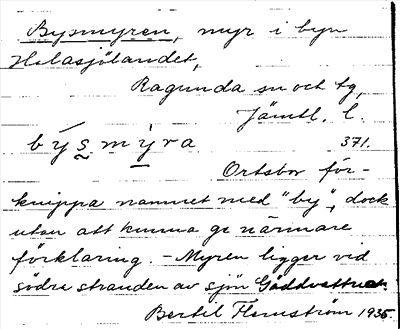 Bysmyren, myr i byn
Holasjölandet,
Ragunda sn och tg,
Jämtl. l.
býsmỳra 371.
Ortsbor för-
knippa namnet med "by", dock
utan att kunna ge närmare
förklaring. - Myren ligger vid
södra stranden av sjön Gåddvattnet.
Bertil Flemström 1935